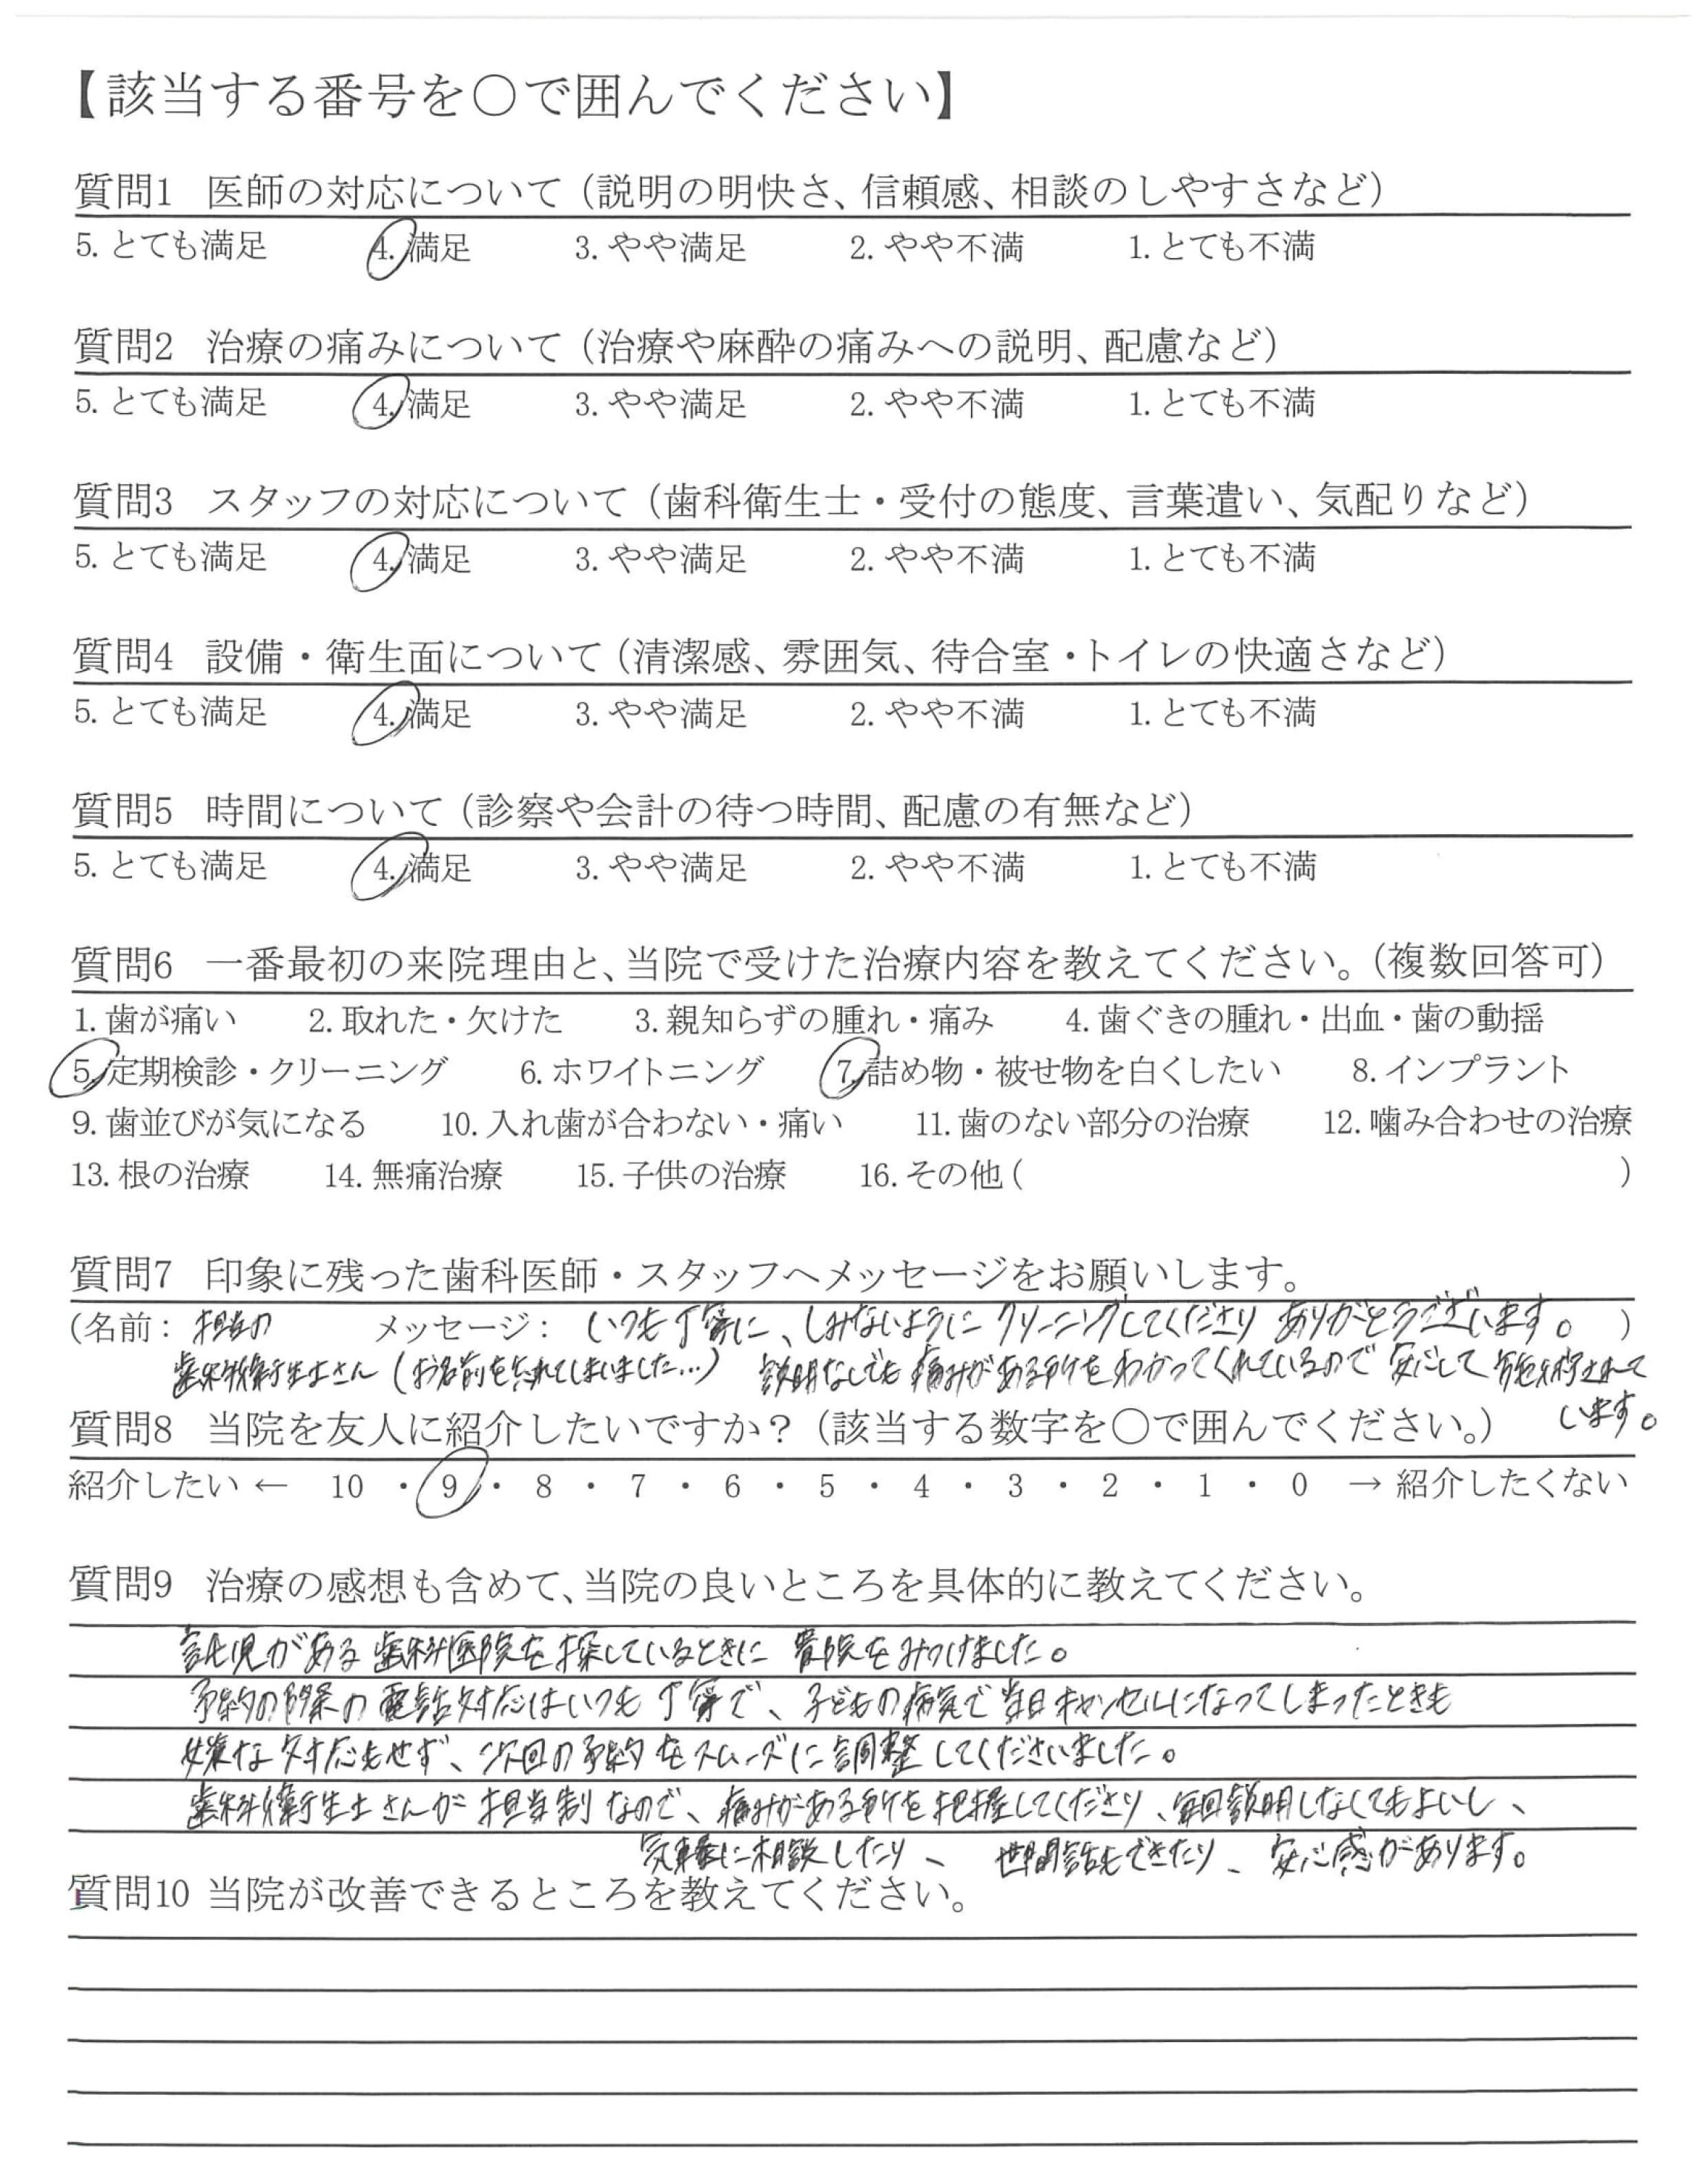 【該当する番号を〇で囲んでください】
質問1 医師の対応について（説明の明快さ、信頼感、相談のしやすさなど）
5. とても満足 4. 満足 3. やや満足 2. やや不満 1. とても不満
質問2 治療の痛みについて（治療や麻酔の痛みへの説明、配慮など）
5. とても満足 4. 満足 3. やや満足 2. やや不満 1. とても不満
質問3 スタッフの対応について（歯科衛生士・受付の態度、言葉遣い、気配りなど）
5. とても満足 4. 満足 3. やや満足 2. やや不満 1. とても不満
質問4 設備・衛生面について（清潔感、雰囲気、待合室・トイレの快適さなど）
5. とても満足 4. 満足 3. やや満足 2. やや不満 1. とても不満
質問5 時間について（診察や会計の待つ時間、配慮の有無など）
5. とても満足 4. 満足 3. やや満足 2. やや不満 1. とても不満
質問6 一番最初の来院理由と、当院で受けた治療内容を教えてください。（複数回答可）
1. 歯が痛い 2. 取れた・欠けた 3. 親知らずの腫れ・痛み 4. 歯ぐきの腫れ・出血・歯の動揺
5. 定期検診・クリーニング 6. ホワイトニング 7. 詰め物・被せ物を白くしたい 8. インプラント
9. 歯並びが気になる 10. 入れ歯が合わない・痛い 11. 歯のない部分の治療 12. 噛み合わせの治療
13. 根の治療 14. 無痛治療 15. 子供の治療 16. その他（ ）
質問7 印象に残った歯科医師・スタッフへメッセージをお願いします。
（名前： 担当の メッセージ： いつも丁寧に、しみないようにクリーニングしてくださりありがとうございます。 ）
歯科衛生士さん（お名前を忘れてしまいました…） 説明なしでも痛みがある所をわかってくれているので安心して施術されて
います。
質問8 当院を友人に紹介したいですか？（該当する数字を〇で囲んでください。）
紹介したい ← 10 ・ 9 ・ 8 ・ 7 ・ 6 ・ 5 ・ 4 ・ 3 ・ 2 ・ 1 ・ 0 → 紹介したくない
質問9 治療の感想も含めて、当院の良いところを具体的に教えてください。
託児がある歯科医院を探しているときに貴院をみつけました。
予約の際の電話対応はいつも丁寧で、子どもの病気で当日キャンセルになってしまったときも
嫌な対応もせず、次回の予約をスムーズに調整してくださいました。
歯科衛生士さんが担当制なので、痛みがある所を把握してくださり、毎回説明しなくてもよいし、
気軽に相談したり、世間話もできたり、安心感があります。
質問10 当院が改善できるところを教えてください。